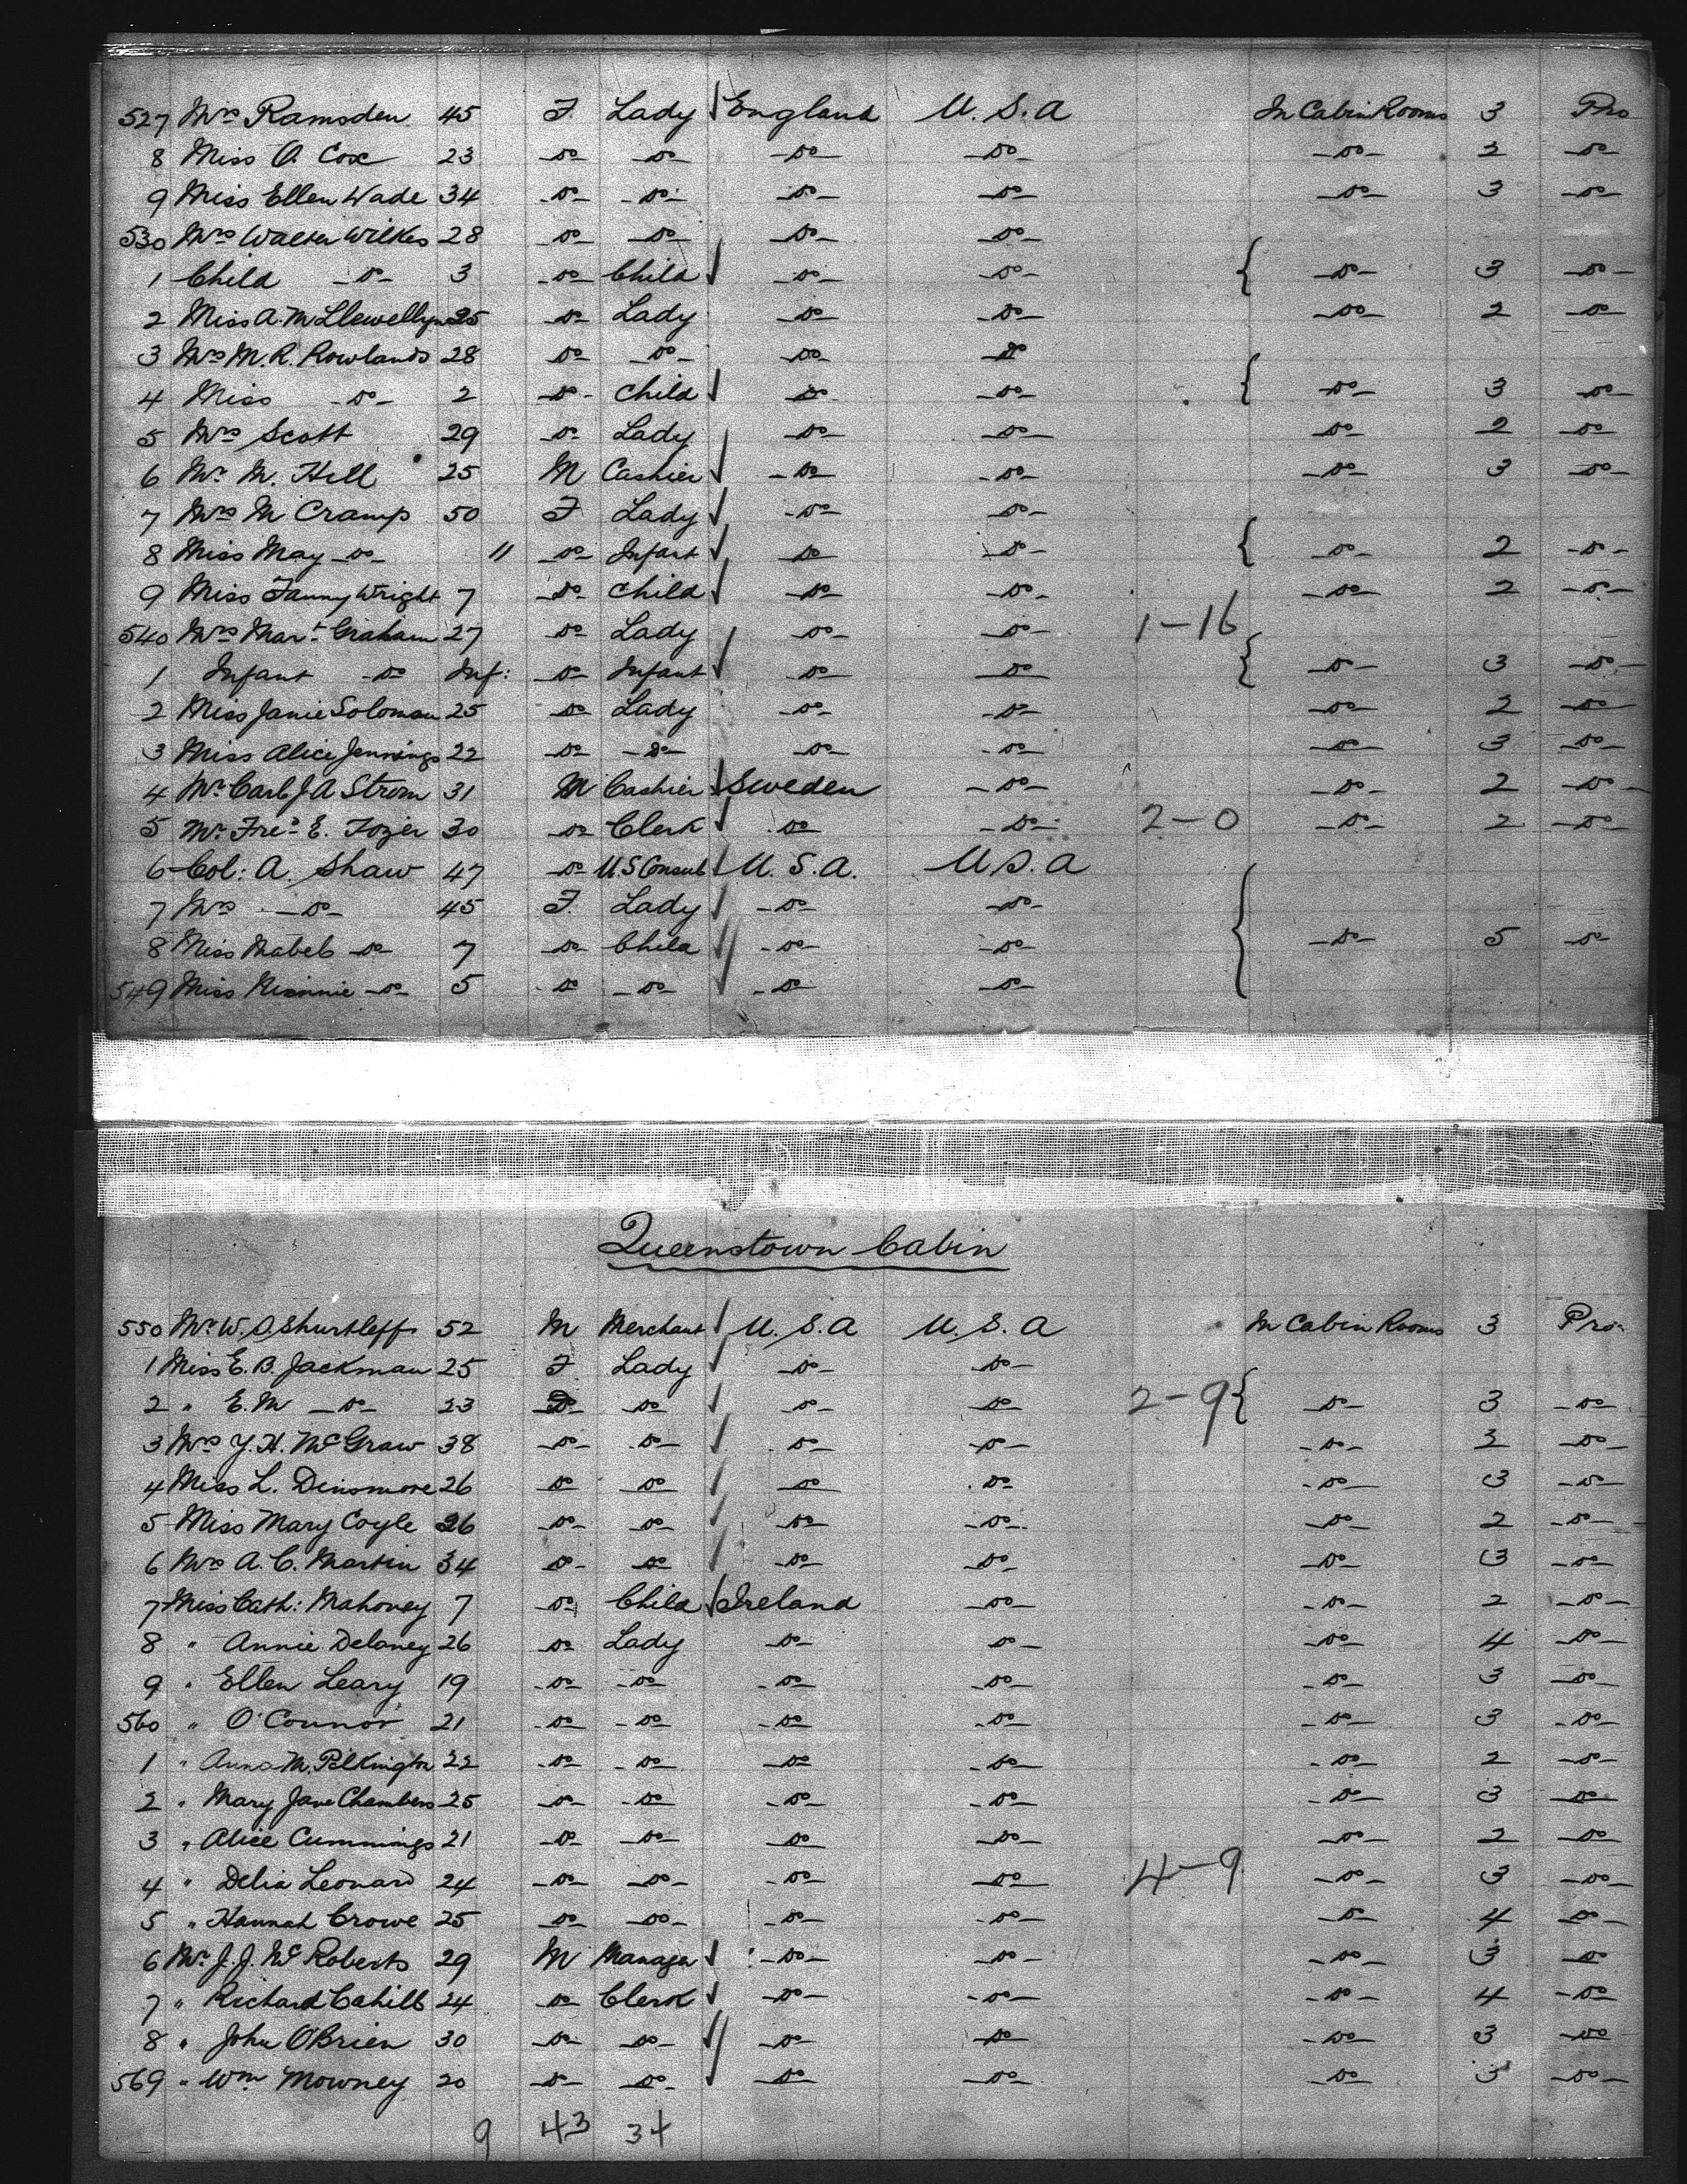 527 Mrs Ramsden 45 F Lady England U.S.A In Cabin Rooms 3 Pro
8 Miss O. Cox 23 -do- -do- -do- -do- -do- 2 -do-
9 Miss Ellen Wade 34 -do- -do- -do- -do- -do- 3 -do-
530 Mrs Walter Wilkes 28 -do- -do- -do- -do-
1 Child -do- 3 -do- Child -do- -do- { -do- 3 -do-
2 Miss A. M Llewellyn 25 -do- Lady -do- -do- -do- 2 -do-
3 Mrs M. R. Rowlands 28 -do- -do- -do- do
4 Miss -do- 2 -do- Child -do- -do- { -do- 3 -do-
5 Mrs Scott 29 -do- Lady -do- -do- -do- 2 -do-
6 Mr M. Hill 25 M Cashier -do- -do- -do- 3 -do-
7 Mrs M Cramp 50 F Lady -do- -do-
8 Miss May -do- 11 -do- Infant -do- -do- { -do- 2 -do-
9 Miss Fanny Wright 7 -do- Child -do- -do- -do- 2 -do-
540 Mrs Mart Graham 27 -do- Lady -do- -do- 1-16
1 Infant -do Inf: -do- Infant -do- -do- { -do- 3 -do-
2 Miss Janie Solomon 25 -do- Lady -do- -do- -do- 2 -do-
3 Miss Alice Jennings 22 -do- -do- -do- -do- -do- 3 -do-
4 Mr Carl J A Strom 31 M Cashier Sweden -do- -do- 2 -do-
5 Mr Fred E. Fozer 30 -do- Clerk do- -do- 2-0 -do- 2 -do-
6 Col: A. Shaw 47 -do- U.S Consul U.S.A. U S. A
7 Mrs -do- 45 F. Lady -do- -do-
8 Miss Mabel -do- 7 -do- Child -do- -do- { -do- 5 -do-
549 Miss Minnie -do- 5 -do- -do- -do- -do-
Queenstown Cabin
550 Mr W. S. Shurtleff 52 M Merchant U.S.A U.S.A In Cabin Rooms 3 Pro-
1 Miss E. B. Jackman 25 F Lady -do- -do-
2 " E. M -do- 23 do -do- -do- -do- 2-9 { -do- 3 -do-
3 Mrs Y. H. McGraw 38 -do- -do- -do- -do- -do- 2 -do-
4 Miss L. Dinsmore 26 -do- -do- -do- do- -do- 3 -do-
5 Miss Mary Coyle 26 -do- -do- -do- -do- -do- 2 -do-
6 Mrs A. C. Martin 34 -do- -do- -do- -do- -do- 3 -do-
7 Miss Cath: Mahoney 7 -do- Child Ireland -do- -do- 2 -do-
8 " Annie Delaney 26 -do- Lady -do- -do- -do- 4 -do-
9 " Ellen Leary 19 -do- -do- -do- -do- -do- 3 -do-
560 " O'Connor 21 -do- -do- -do- -do- -do- 3 -do-
1 " Anna M. Pilkington 22 -do- -do- -do- -do- -do- 2 -do-
2 " Mary Jane Chambers 25 -do- -do- -do- -do- -do- 3 -do-
3 " Alice Cummings 21 -do- -do- -do- -do- -do- 2 -do-
4 " Delia Leonard 24 -do- -do- -do- -do- 4-9 -do- 3 -do-
5 " Hannah Crowe 25 -do- -do- -do- -do- -do- 4 -do-
6 Mr J. J. McRoberts 29 M Manager -do- -do- -do- 3 -do
7 " Richard Cahill 24 -do- Clerk -do- -do- -do- 4 -do-
8 " John O'Brien 30 -do- -do- -do- -do- -do- 3 -do
569 " Wm Mowney 20 -do- -do- -do- -do- -do- 3 -do-
9 43 34